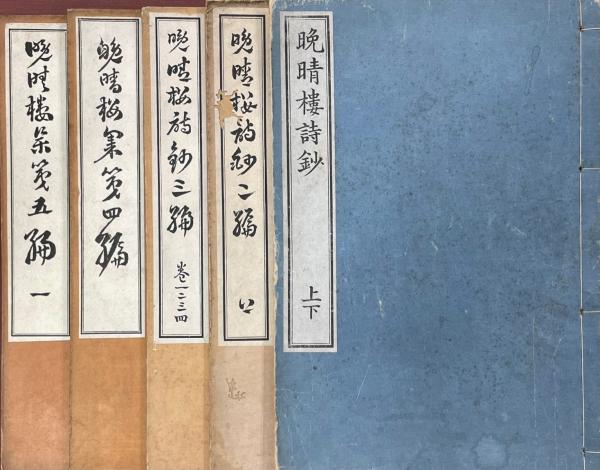 晩晴樓詩鈔
上下
晩晴樓詩鈔二編
晩晴樓詩鈔三編
卷一二三四
晩晴樓集第四編
晩晴樓
五編
一